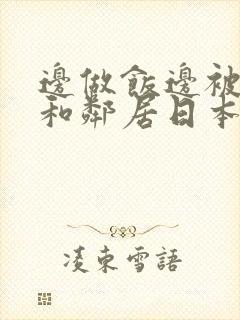 邊做飯邊被
和鄰居日本
凌東雪語